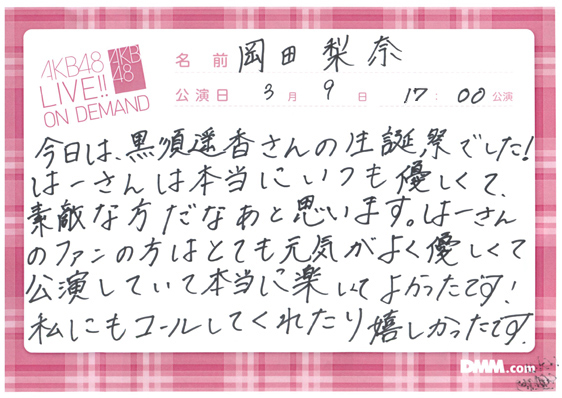 AKB48
LIVE!!
ON DEMAND
AKB
48
名前 岡田梨奈
公演日 3月9日 17:00公演
今日は、黒須遥香さんの生誕祭でした!
はーさんは本当にいつも優しくて、
素敵な方だなあと思います。はーさん
のファンの方はとても元気がよく優しくて
公演していて本当に楽しくてよかったです!
私にもコールしてくれたり嬉しかったです。
DMM.com